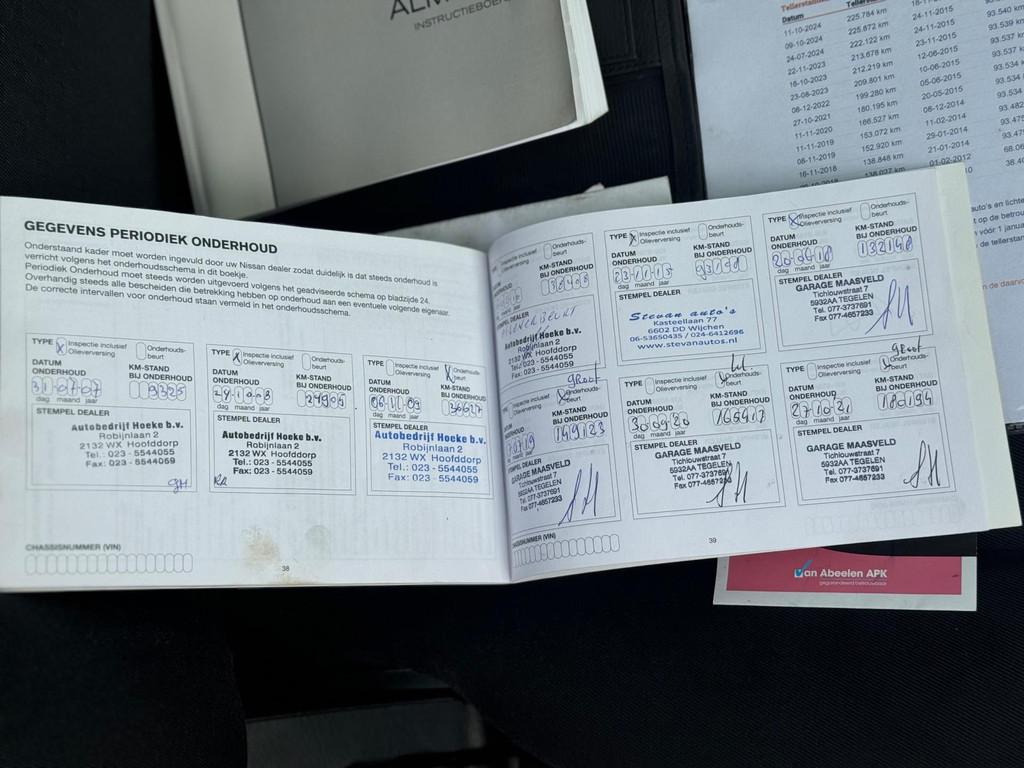 ALM
INSTRUCTIEBOEK
Tellerstanden
Datum
11-10-2024 225.784 km
09-10-2024 225.672 km
24-07-2024 222.122 km
22-11-2023 213.678 km
16-10-2023 212.219 km
23-08-2023 209.801 km
06-12-2022 199.280 km
27-10-2021 180.195 km
11-11-2020 166.527 km
11-11-2019 153.072 km
08-11-2019 152.920 km
16-11-2018 138.848 km
24-11-2015 93.540 km
24-11-2015 93.539 km
23-11-2015 93.537
12-06-2015 93.537
10-06-2015 93.534
05-06-2015 93.534
20-05-2015
08-12-2014 93.482
11-02-2014 93.475
29-01-2014
21-01-2014
01-02-2012
GEGEVENS PERIODIEK ONDERHOUD
Onderstaand kader moet worden ingevuld door uw Nissan dealer zodat duidelijk is dat steeds onderhoud is
verricht volgens het onderhoudsschema in dit boekje.
Periodiek Onderhoud moet steeds worden uitgevoerd volgens het geadviseerde schema op bladzijde 24.
Overhandig steeds alle bescheiden die betrekking hebben op onderhoud aan een eventuele volgende eigenaar.
De correcte intervallen voor onderhoud staan vermeld in het onderhoudsschema.
TYPE X Inspectie inclusief Olieverversing Onderhoudsbeurt
DATUM ONDERHOUD KM-STAND BIJ ONDERHOUD
310707 9325
dag maand jaar
STEMPEL DEALER
Autobedrijf Hoeke b.v.
Robijnlaan 2
2132 WX Hoofddorp
Tel.: 023 - 5544055
Fax: 023 - 5544059
TYPE X Inspectie inclusief Olieverversing Onderhoudsbeurt
DATUM ONDERHOUD KM-STAND BIJ ONDERHOUD
dag maand jaar
STEMPEL DEALER
Autobedrijf Hoeke b.v.
Robijnlaan 2
2132 WX Hoofddorp
Tel.: 023 - 5544055
Fax: 023 - 5544059
TYPE Inspectie inclusief Olieverversing X Onderhoudsbeurt
DATUM ONDERHOUD KM-STAND BIJ ONDERHOUD
061109 36627
dag maand jaar
STEMPEL DEALER
Autobedrijf Hoeke b.v.
Robijnlaan 2
2132 WX Hoofddorp
Tel.: 023 - 5544055
Fax: 023 - 5544059
CHASSISNUMMER (VIN)
38
Inspectie inclusief Olieverversing Onderhoudsbeurt
KM-STAND BIJ ONDERHOUD
STEMPEL DEALER
Autobedrijf Hoeke b.v.
Robijnlaan 2
2132 WX Hoofddorp
Tel.: 023 - 5544055
Fax: 023 - 5544059
TYPE X Inspectie inclusief Olieverversing Onderhoudsbeurt
DATUM ONDERHOUD KM-STAND BIJ ONDERHOUD
231115
dag maand jaar
STEMPEL DEALER
Stevan auto's
Kasteellaan 77
6602 DD Wijchen
06-53650435 / 024-6412696
www.stevanautos.nl
TYPE X Inspectie inclusief Olieverversing Onderhoudsbeurt
DATUM ONDERHOUD KM-STAND BIJ ONDERHOUD
132148
dag maand jaar
STEMPEL DEALER
GARAGE MAASVELD
Tichlouwstraat 7
5932AA TEGELEN
Tel. 077-3737691
Fax 077-4657233
Inspectie inclusief Olieverversing X Onderhoudsbeurt
groot
KM-STAND BIJ ONDERHOUD
149123
STEMPEL DEALER
GARAGE MAASVELD
Tichlouwstraat 7
5932AA TEGELEN
Tel. 077-3737691
Fax 077-4657233
TYPE Inspectie inclusief Olieverversing X Onderhoudsbeurt
DATUM ONDERHOUD KM-STAND BIJ ONDERHOUD
300920 165417
dag maand jaar
STEMPEL DEALER
GARAGE MAASVELD
Tichlouwstraat 7
5932AA TEGELEN
Tel. 077-3737691
Fax 077-4657233
groot
TYPE Inspectie inclusief Olieverversing X Onderhoudsbeurt
DATUM ONDERHOUD KM-STAND BIJ ONDERHOUD
271021 180194
dag maand jaar
STEMPEL DEALER
GARAGE MAASVELD
Tichlouwstraat 7
5932AA TEGELEN
Tel. 077-3737691
Fax 077-4657233
CHASSISNUMMER (VIN)
39
Van Abeelen APK
gegarandeerd betrouwbaar